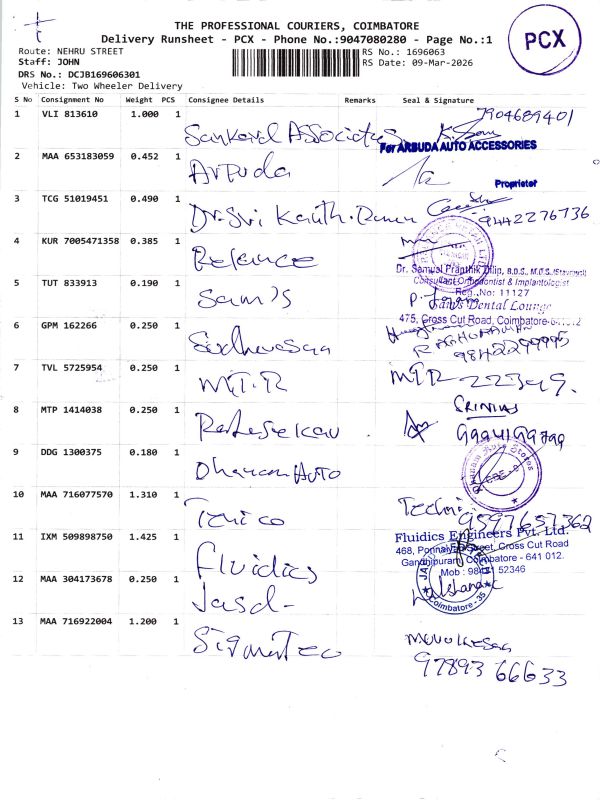 THE PROFESSIONAL COURIERS, COIMBATORE
Delivery Runsheet - PCX - Phone No.:9047080280 - Page No.:1
PCX
Route: NEHRU STREET
RS No.: 1696063
Staff: JOHN
RS Date: 09-Mar-2026
DRS No.: DCJB169606301
Vehicle: Two Wheeler Delivery
S No Consignment No Weight PCS Consignee Details Remarks Seal & Signature
1 VLI 813610 1.000 1 7904689401
For ARBUDA AUTO ACCESSORIES
2 MAA 653183059 0.452 1 Arbuda
Proprietor
3 TCG 51019451 0.490 1 Dr. Sri 9442276736
4 KUR 7005471358 0.385 1 Relence
Dr. Samuel Pranthik Dilip, B.D.S., M.D.S.
Consultant Orthodontist & Implantologist
Reg. No: 11127
5 TUT 833913 0.190 1 Sam's
Sam's Dental Lounge
475, Cross Cut Road, Coimbatore-641012
6 GPM 162266 0.250 1
RAGHURAMAN
9842299995
7 TVL 5725954 0.250 1 M.T.R MTR 22349.
8 MTP 1414038 0.250 1 SRINIVAS
9994199799
9 DDG 1300375 0.180 1 Dharan Auto
10 MAA 716077570 1.310 1 Techni
9597657362
11 IXM 509898750 1.425 1 Fluidics
Fluidics Engineers Pvt. Ltd.
468, Ponnaiyan Street, Cross Cut Road
Gandhipuram, Coimbatore - 641 012.
12 MAA 304173678 0.250 1 Jasd-
Coimbatore - 35
13 MAA 716922004 1.200 1 SigmaTec
97893 66633